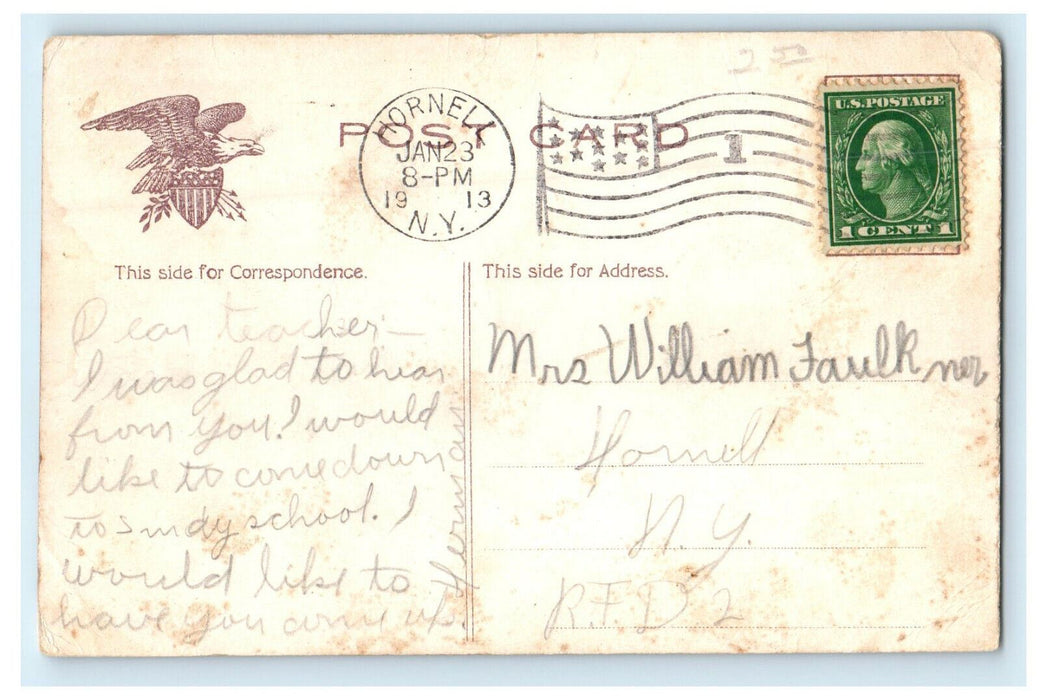 2 50
POST CARD
HORNELL
JAN 23
8-PM
19 13
N.Y.
1
U.S. POSTAGE
1 CENT 1
This side for Correspondence.
This side for Address.
Dear teacher—
I was glad to hear
from you. I would
like to come down
to Sunday school. I
would like to
have you come up.
Herman
Mrs William Faulkner
Hornell
N.Y.
R.F.D 2